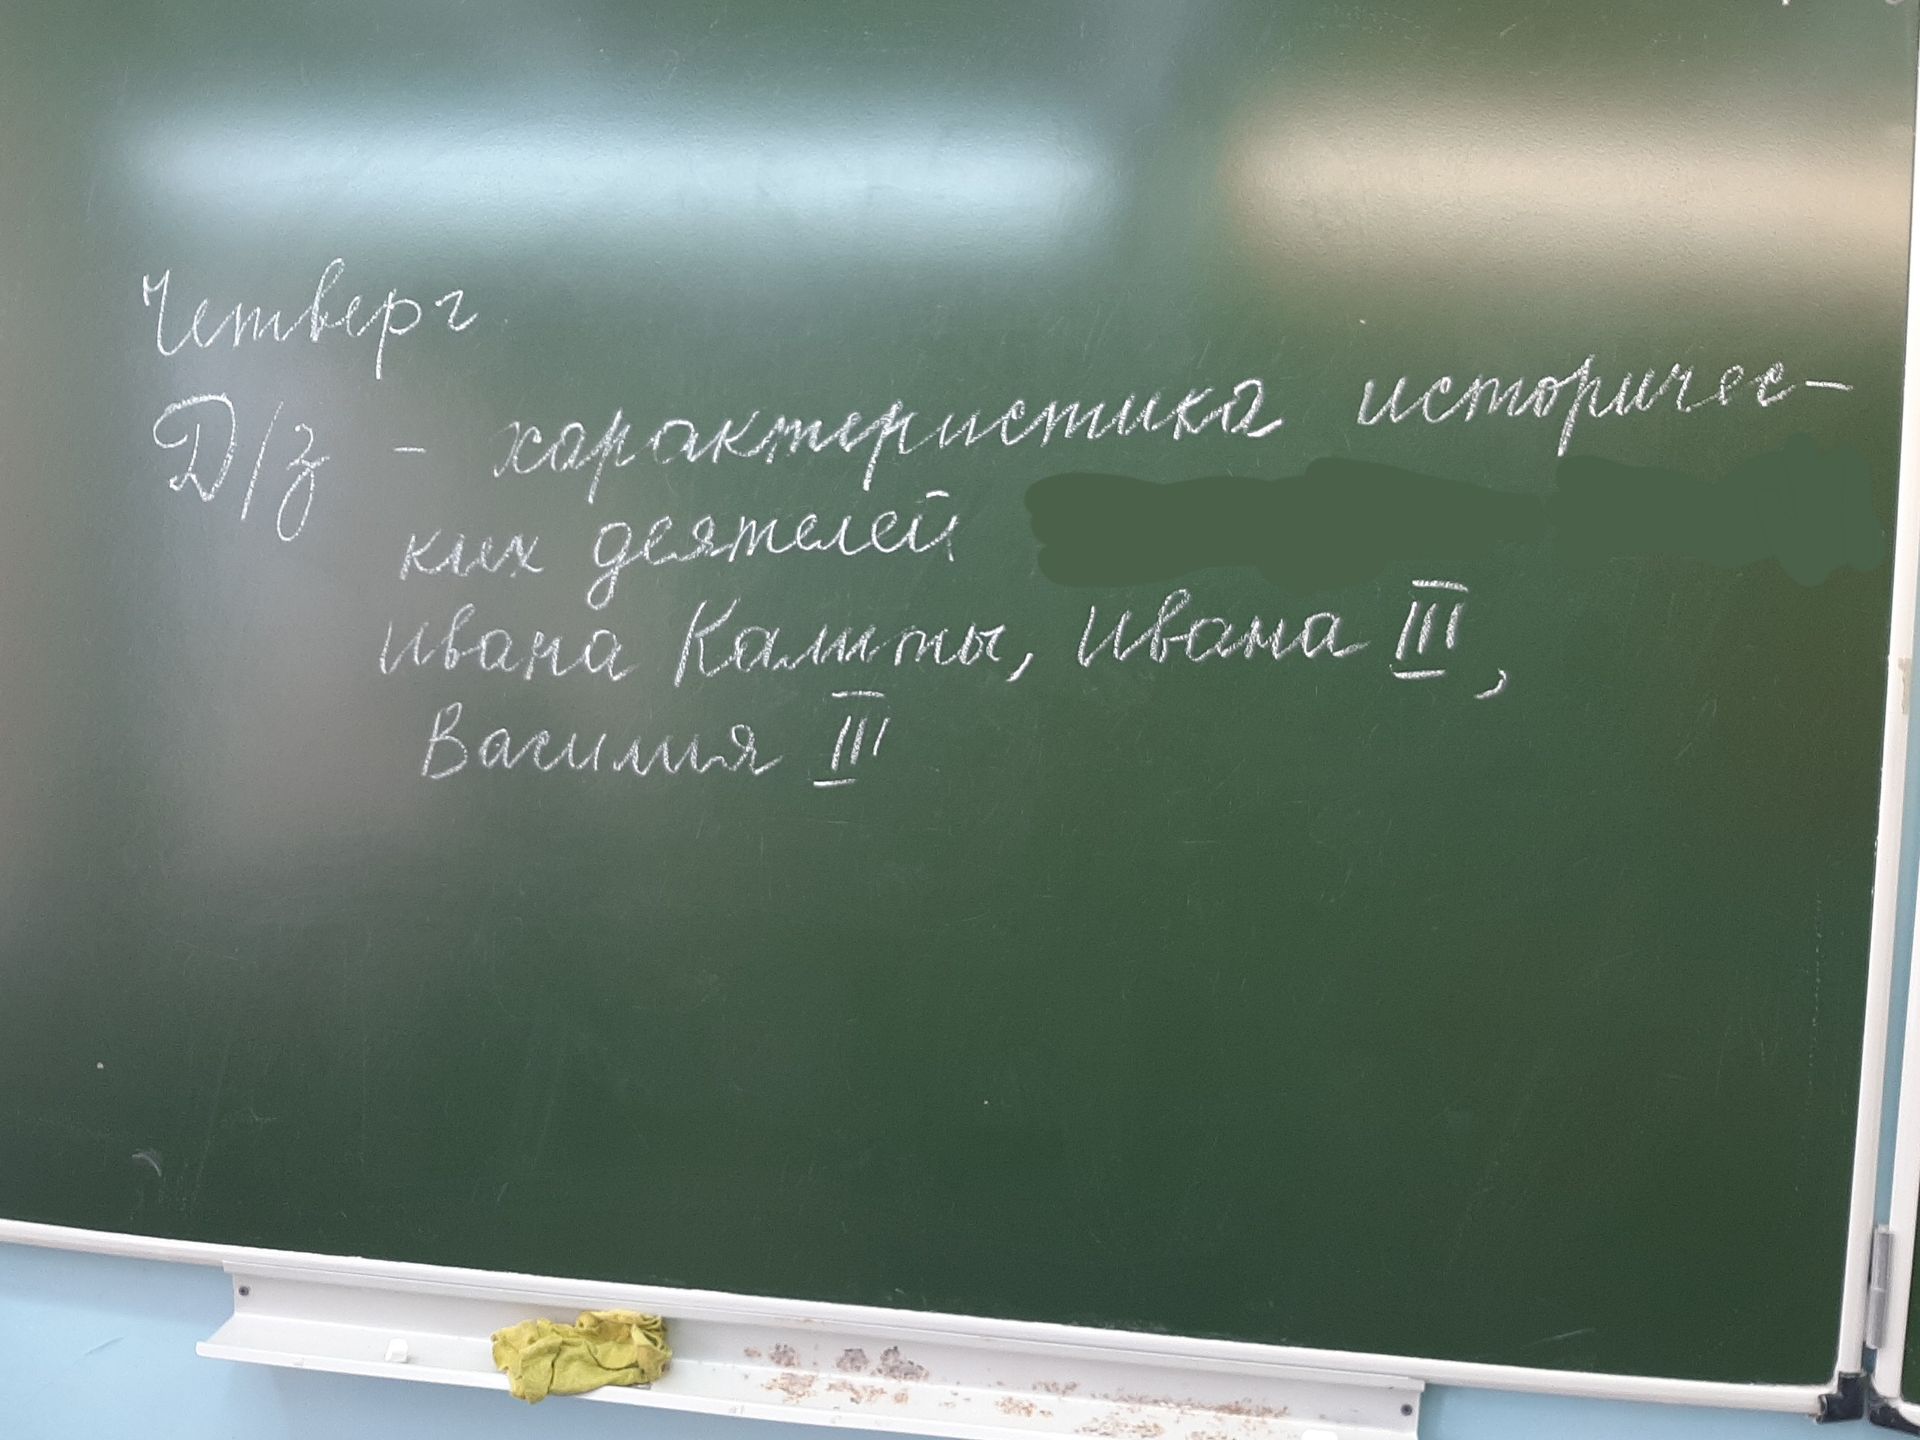 Четверг
Д/з - характеристика историчес-
ких деятелей
Ивана Калиты, Ивана III,
Василия III